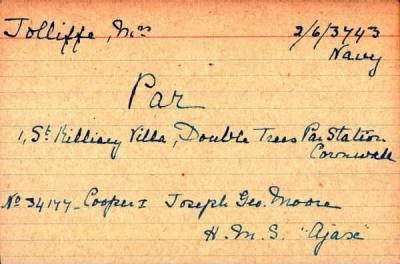 Jolliffe, Mrs 2/6/3743
Navy
Par
1, St Villa, Double Trees Par Station
Cornwall
No 34177 - Cooper I Joseph Geo. Moore
H. M. S. "Ajax"